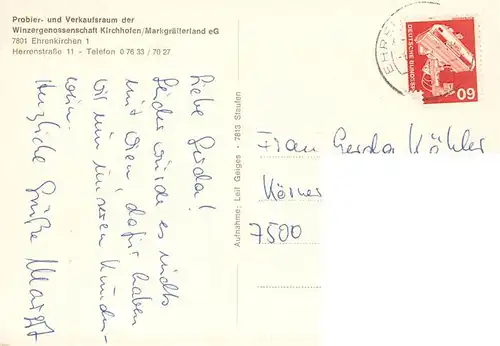 Probier- und Verkaufsraum der
Winzergenossenschaft Kirchhofen/Markgräflerland eG
7801 Ehrenkirchen 1
Herrenstraße 11 - Telefon 0 76 33 / 70 27
Liebe Gerda!
Leider würde es nichts
mit Wien, dafür haben
wir nun unseren Kinder-
wein.
Herzliche Grüße Margot
Aufnahme: Leif Geiges · 7813 Staufen
Frau Gerda Köhler
Körner
7500
EHR
DEUTSCHE BUNDESP
60